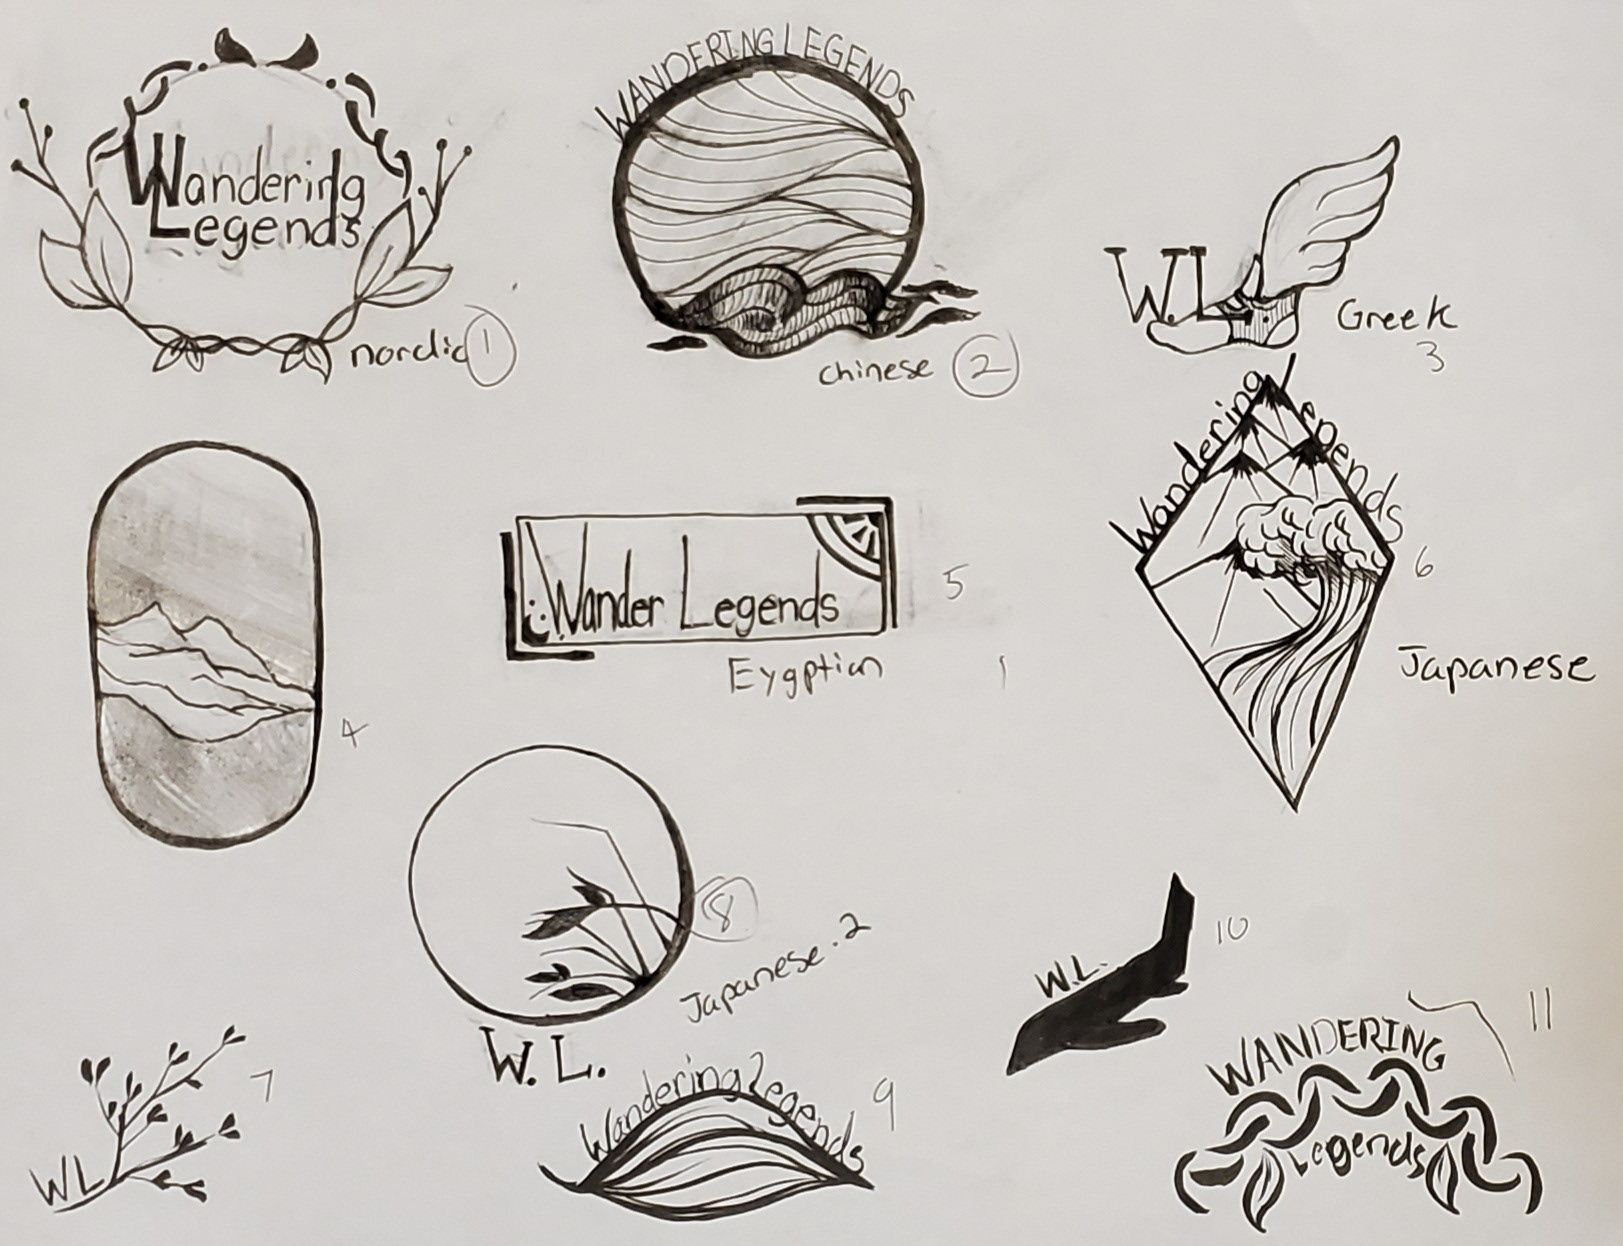 Wandering
Legends
nordic 1
WANDERING LEGENDS
chinese 2
W.L.
Greek
3
4
Wander Legends
5
Eygptian
Wandering Legends
6
Japanese
WL
7
8
Japanese.2
W. L.
Wandering Legends
9
W.L.
10
WANDERING
Legends
11